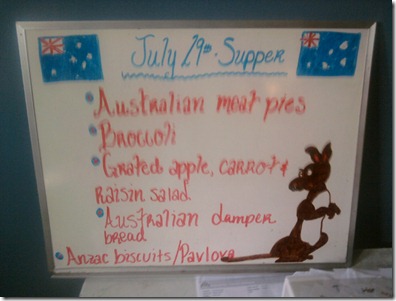 July 29th Supper
Australian meat pies
Broccoli
Grated apple, carrot &
raisin salad
Australian damper
bread
Anzac biscuits/Pavlova